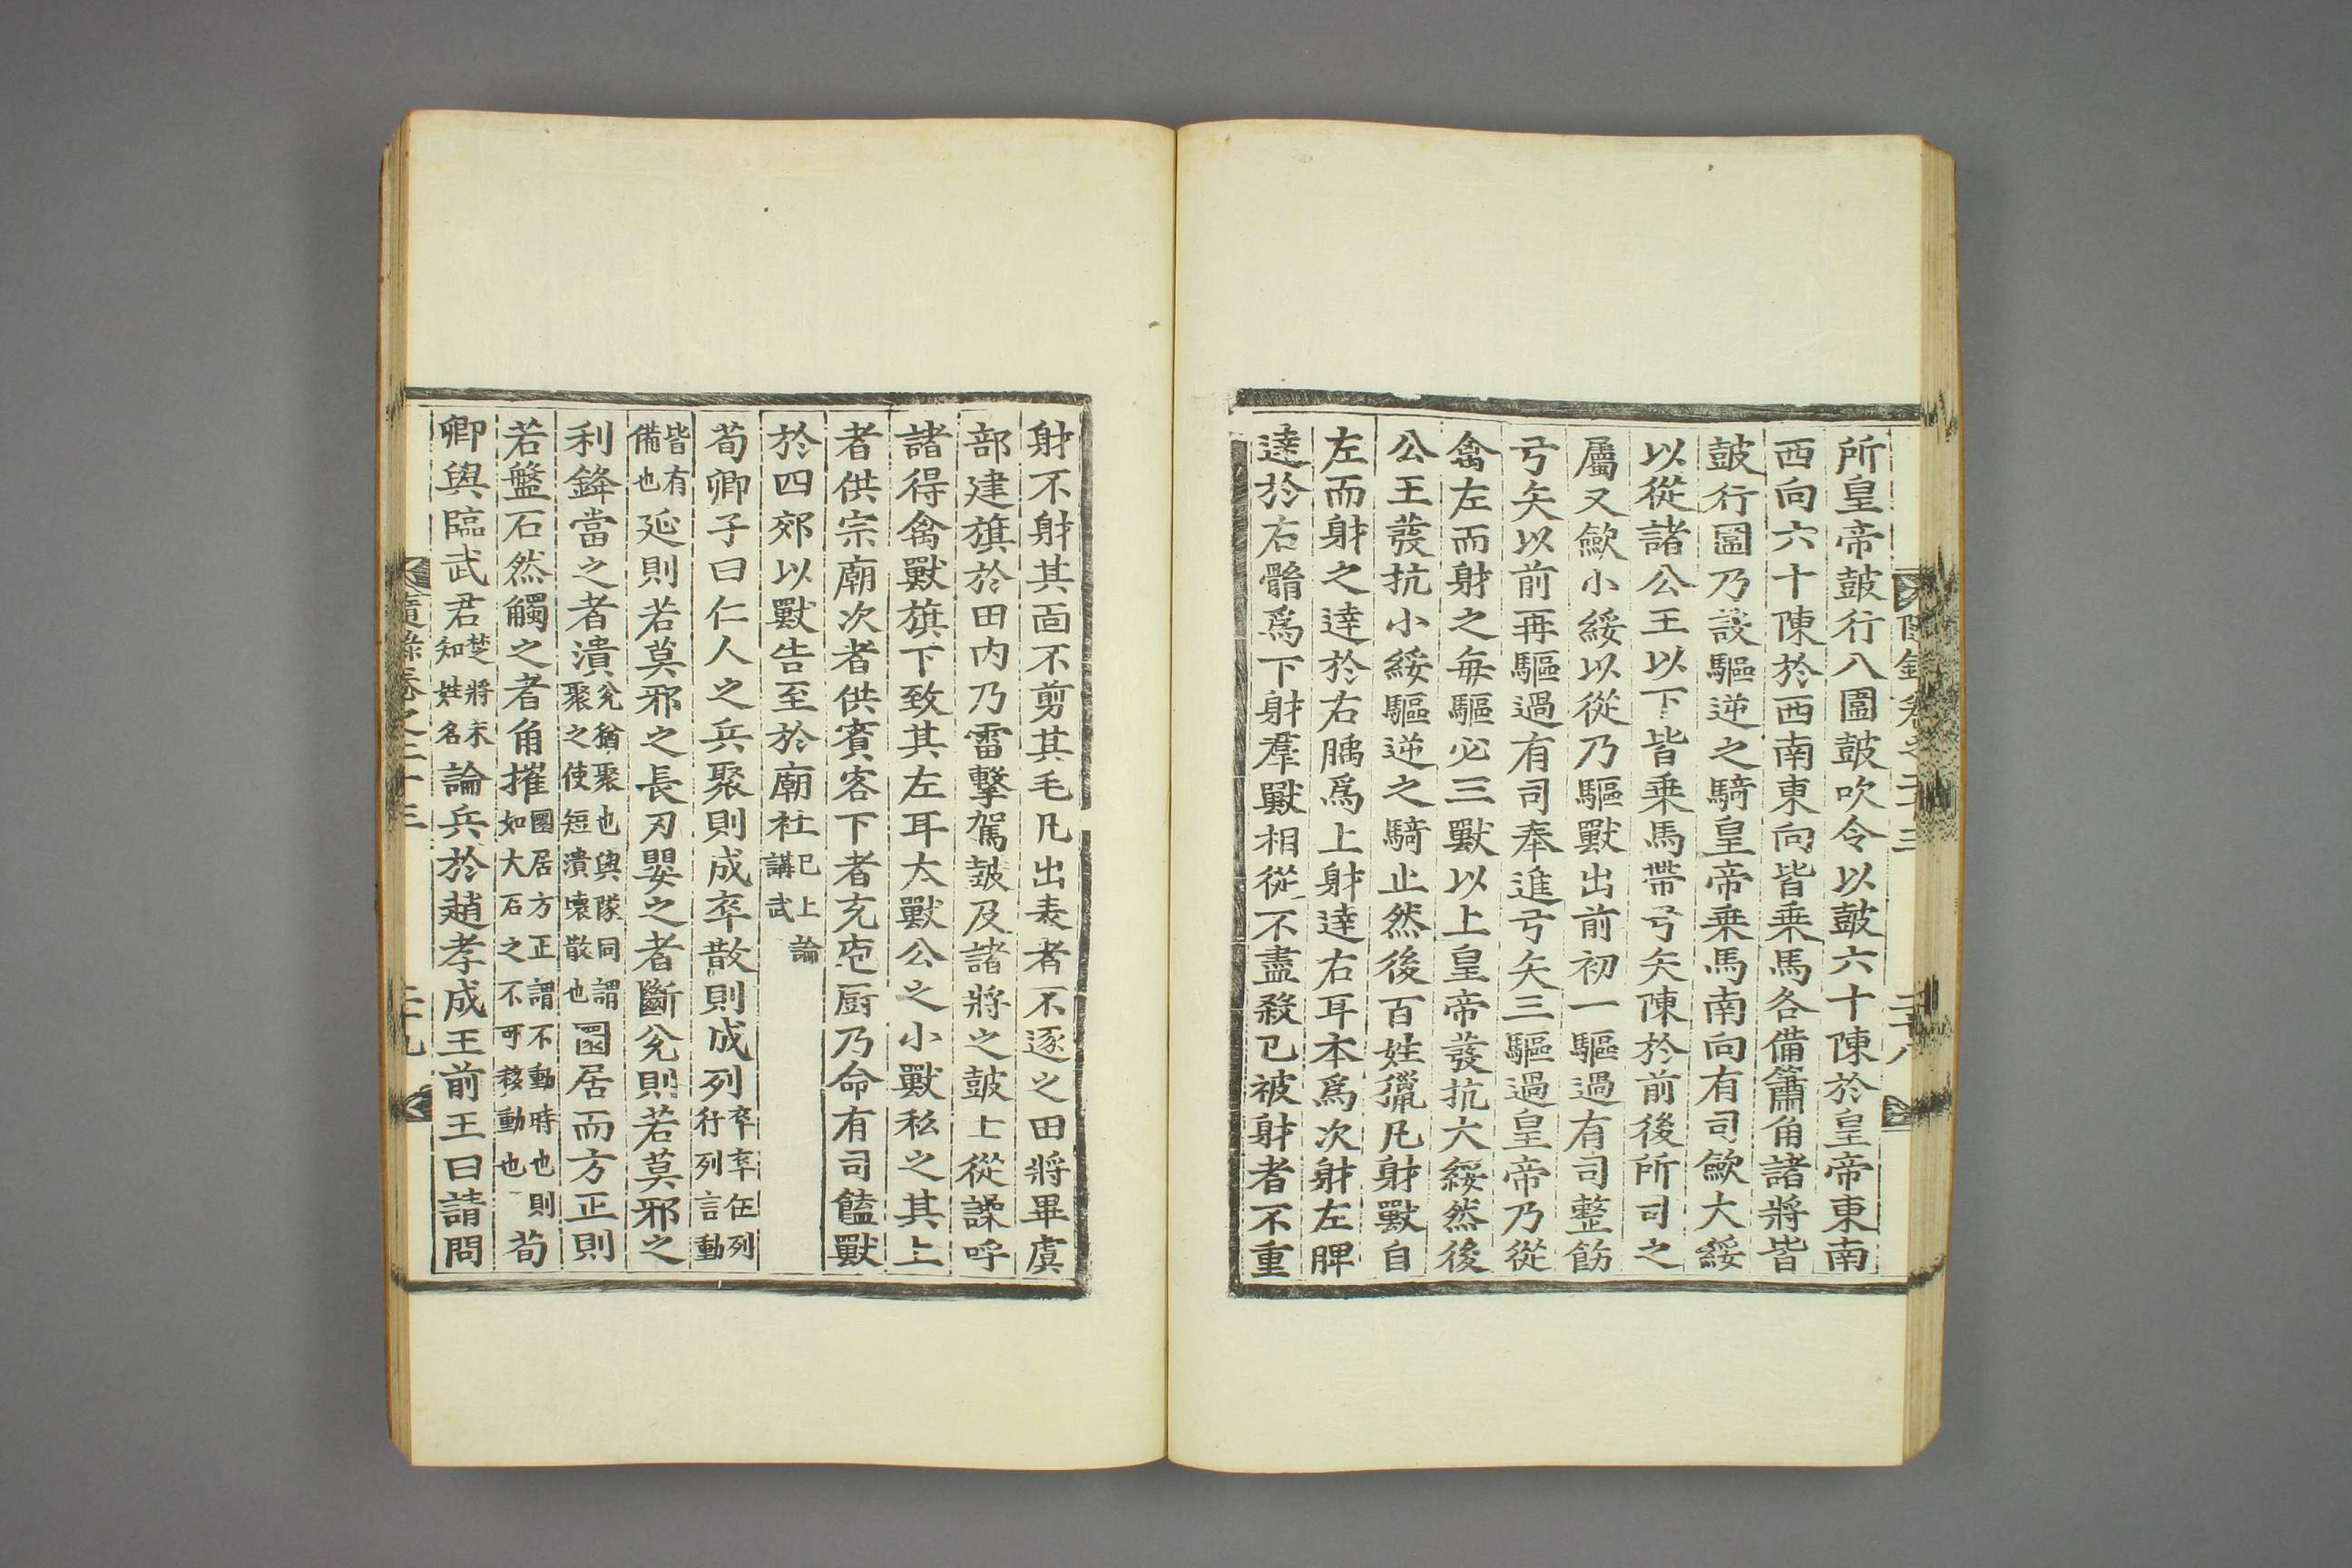 所皇帝鼓行八圍鼓吹令以鼓六十陳於皇帝東南
西向六十陳於西南東向皆乗馬各備簫角諸將皆
鼓行圍乃設驅逆之騎皇帝乗馬南向有司歛大綏
以從諸公王以下皆乗馬帶弓矢陳於前後所司之
屬又歛小綏以從乃驅獸出前初一驅過有司整飭
弓矢以前再驅過有司奉進弓矢三驅過皇帝乃從
禽左而射之毎驅必三獸以上皇帝發抗大綏然後
公王發抗小綏驅逆之騎止然後百姓獵凡射獸自
左而射之達於右腢爲上射達右耳本爲次射左脾
達於右䯚爲下射羣獸相從不盡殺已被射者不重
射不射其面不剪其毛凡出表者不逐之田將畢虞
部建旗於田内乃雷擊駕鼓及諸將之鼓士從譟呼
諸得禽獸旗下致其左耳大獸公之小獸私之其上
者供宗廟次者供賓客下者充庖厨乃命有司饁獸
於四郊以獸告至於廟社已上論講武
荀卿子曰仁人之兵聚則成卒散則成列卒卒伍列行列言動
皆有備也延則若莫邪之長刃嬰之者斷兊則若莫邪之
利鋒當之者潰兊猶聚也與隊同謂聚之使短潰壊散也圎居而方正則
若盤石然觸之者角摧圎居方正謂不動時也則如大石之不可移動也荀
卿與臨武君楚將未知姓名論兵於趙孝成王前王曰請問
卷之二十三
二十九